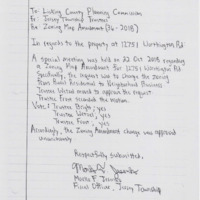 To: Licking County Planning Commission
Fr: Jersey Township Trustees
Re: Zoning Map Amendment (26-2018)
In regards to the property at 12751 Worthington Rd
A special meeting was held on 22 Oct 2018 regarding
a Zoning Map Amendment for 12751 Worthington Rd
Specifically, the request was to change the zoning
from Rural Residential to Neighborhood Business
Trustee Wetzel moved to approve the request
Trustee Frost seconded the motion.
Vote: Trustee Bright, yes
Trustee Wetzel, yes
Trustee Frost, yes
Accordingly, the Zoning Amendment change was approved
unanimously
Respectfully submitted,
Fiscal Officer, Jersey Township